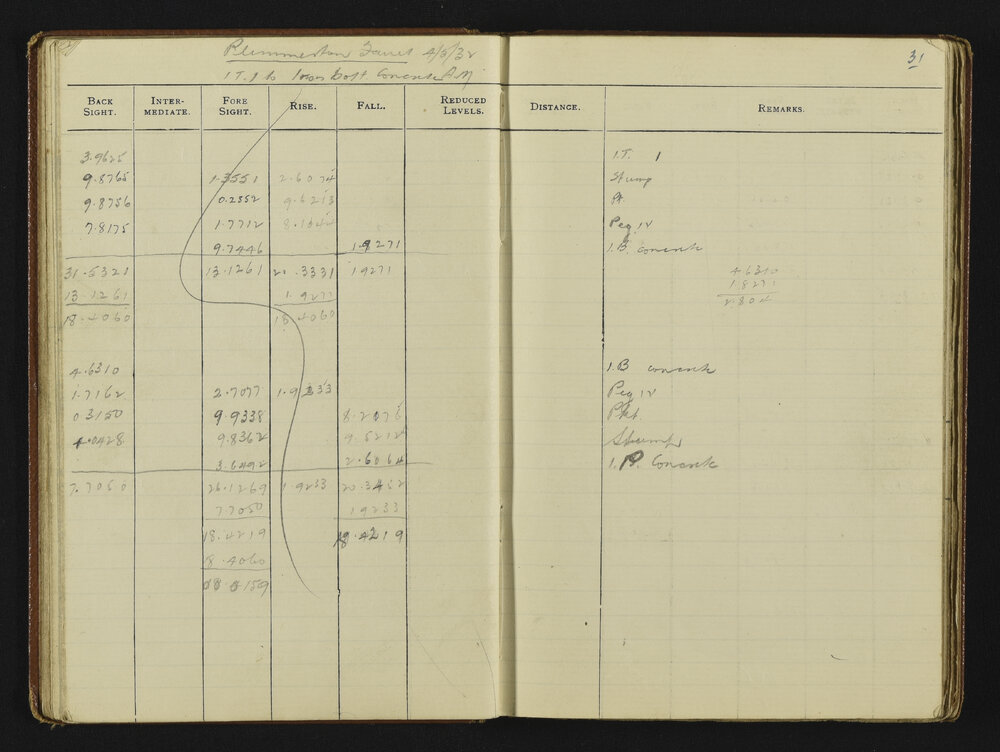 Plimmerton 4/5/32
31
1 T. 1 to Iron bolt Concrete
BACK SIGHT. INTER-MEDIATE. FORE SIGHT. RISE. FALL. REDUCED LEVELS. DISTANCE. REMARKS.
3.9625 1.T. 1
9.8765 1.3551 2.6074 Stump
9.8756 0.2552 9.6213 Pt.
7.8175 1.7712 8.1044 Peg IV
9.7446 1.9271 1.B. concrete
31.5321 13.1261 20.3331 1.9271 4.6310
13.1261 1.9271 1.8271
18.4060 18.4060 2.804
4.6310 1.B concrete
1.7162 2.7077 1.9233 Peg IV
0.3150 9.9338 8.2176 Pkt.
4.0428 9.8362 9.5212 Stump
3.6492 2.6064 1.B. Concrete
7.7050 26.1269 1.9233 20.3452
7.7050 1.9233
18.4219 18.4219
18.4060
0.0159